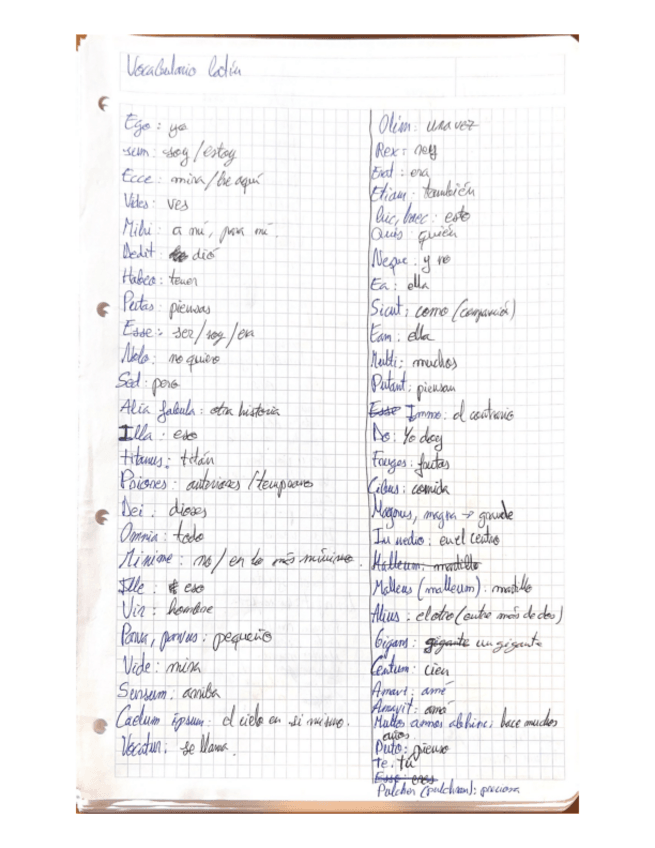 Vocabulario latín
Ego: yo
sum: soy/estoy
Ecce: mira/he aquí
Vides: ves
Mihi: a mí, para mí.
Dedit: dió
Habeo: tener
Putas: piensas
Esse: ser/soy/era
Nolo: no quiero
Sed: pero
Alia fabula: otra historia
Illa: eso
titanus: titán
Priores: anteriores/temprano
Dei: dioses
Omnia: todo
Minime: no/en lo más mínimo.
Ille: eso
Vir: hombre
Parva, parvus: pequeño
Vide: mira
Sursum: arriba
Caelum ipsum: el cielo en si mismo.
Vocatur: se llama.
Olim: una vez
Rex: rey
Erat: era
Etiam: también
hic, haec: esto
Quis: quién
Neque: y no
Ea: ella
Sicut: como (comparación)
Eam: ella
Multi: muchos
Putant: piensan
Esse Immo: al contrario
Do: Yo doy
Fauges: fautas
Cibus: comida
Magnus, magna → grande
In medio: en el centro
Malleum: martillo
Malleus (malleum): martillo
Alius: el otro (entre más de dos)
Gigans: gigante un gigante
Centum: cien
Amavi: amé
Amavit: amó
Multos annos abhinc: hace muchos
años
Puto: pienso
Te: tú
Esse: eres
Pulcher (pulchram): preciosa